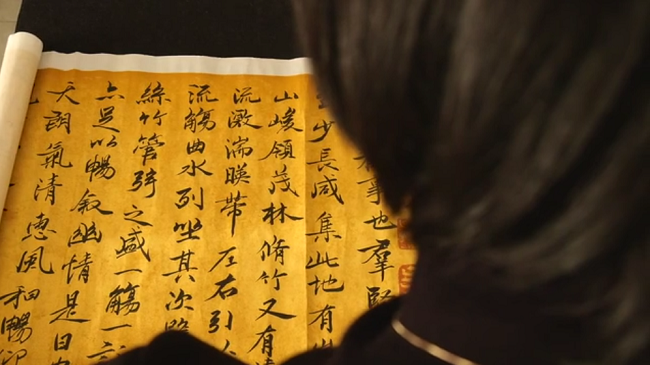 事也羣賢
少長咸集此地有
山峻領茂林脩竹又有
流激湍暎帶左右引
流觴曲水列坐其次
絲竹管弦之盛一觴一
亦足以暢敘幽情是日
天朗氣清惠風和暢仰